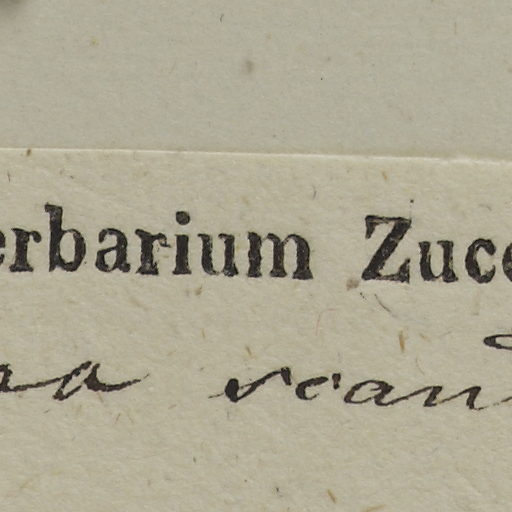 erbarium Zucc
aa scand